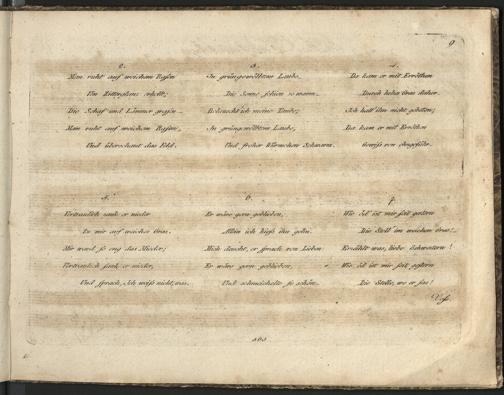 9
2.
Man ruht auf weichem Rasen
Von Zittergras erhellt;
Die Schaf und Lämmer grasen
Man ruht auf weichem Rasen,
Und überschaut das Feld.
3.
In grüngewölbter Laube,
Die Sonne schien so warm,
ich meine Taube;
In grüngewölbter Laube,
Und froher Würmchen Schwarm.
4.
Da kam er mit Erröthen
Durch hohes Gras daher.
Ich hatt ihn nicht gebeten;
Da kam er mit Erröthen
Gewiss von ohngefähr.
5.
Vertraulich sank er nieder
Zu mir auf weiches Gras.
Mir ward so eng das Mieder;
Vertraulich sank er nieder,
Und sprach, Ich weiss nicht, was.
6.
Er wäre gern geblieben,
Allein ich hiess ihn gehn.
Mich däucht, er sprach von Lieben
Er wäre gern geblieben,
Und schmeichelte so schön.
7.
Wie öd' ist mir seit gestern
Die Stell' am weichen Gras!
Erzählt was, liebe Schwestern!
Wie öd' ist mir seit gestern
Die Stelle, wo er sas!
Voss.
363